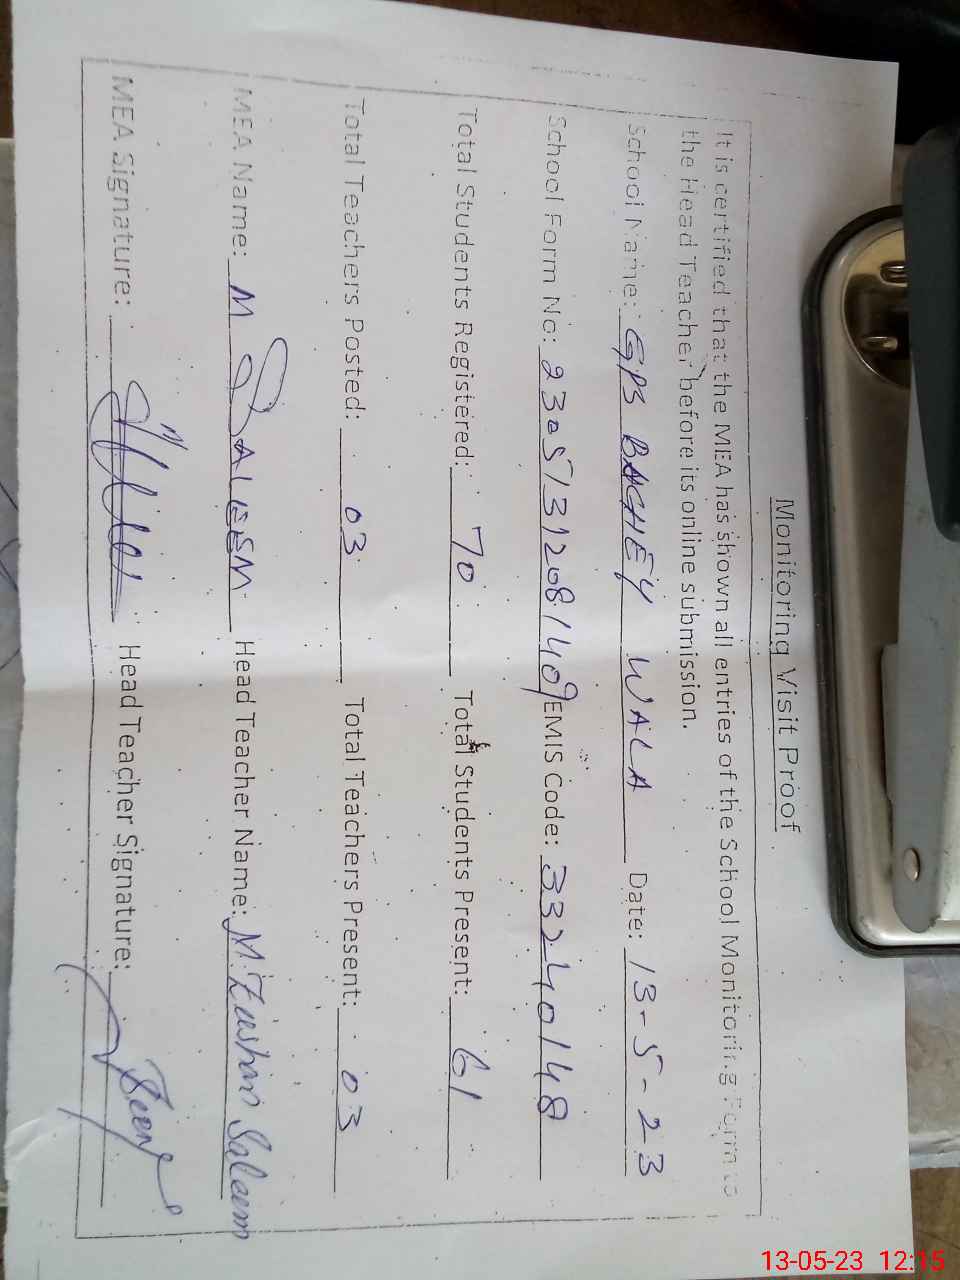 Monitoring Visit Proof
It is certified that the MEA has shown all entries of the School Monitoring Form to
the Head Teacher before its online submission.
School Name: GPS BACHEY WALA Date: 13-5-23
School Form No: 23051312081409 EMIS Code: 33240148
Total Students Registered: 70 Total Students Present: 61
Total Teachers Posted: 03 Total Teachers Present: 03
MEA Name: M SALEEM Head Teacher Name: M. Zeeshan Saleem
MEA Signature: Head Teacher Signature:
13-05-23 12:15